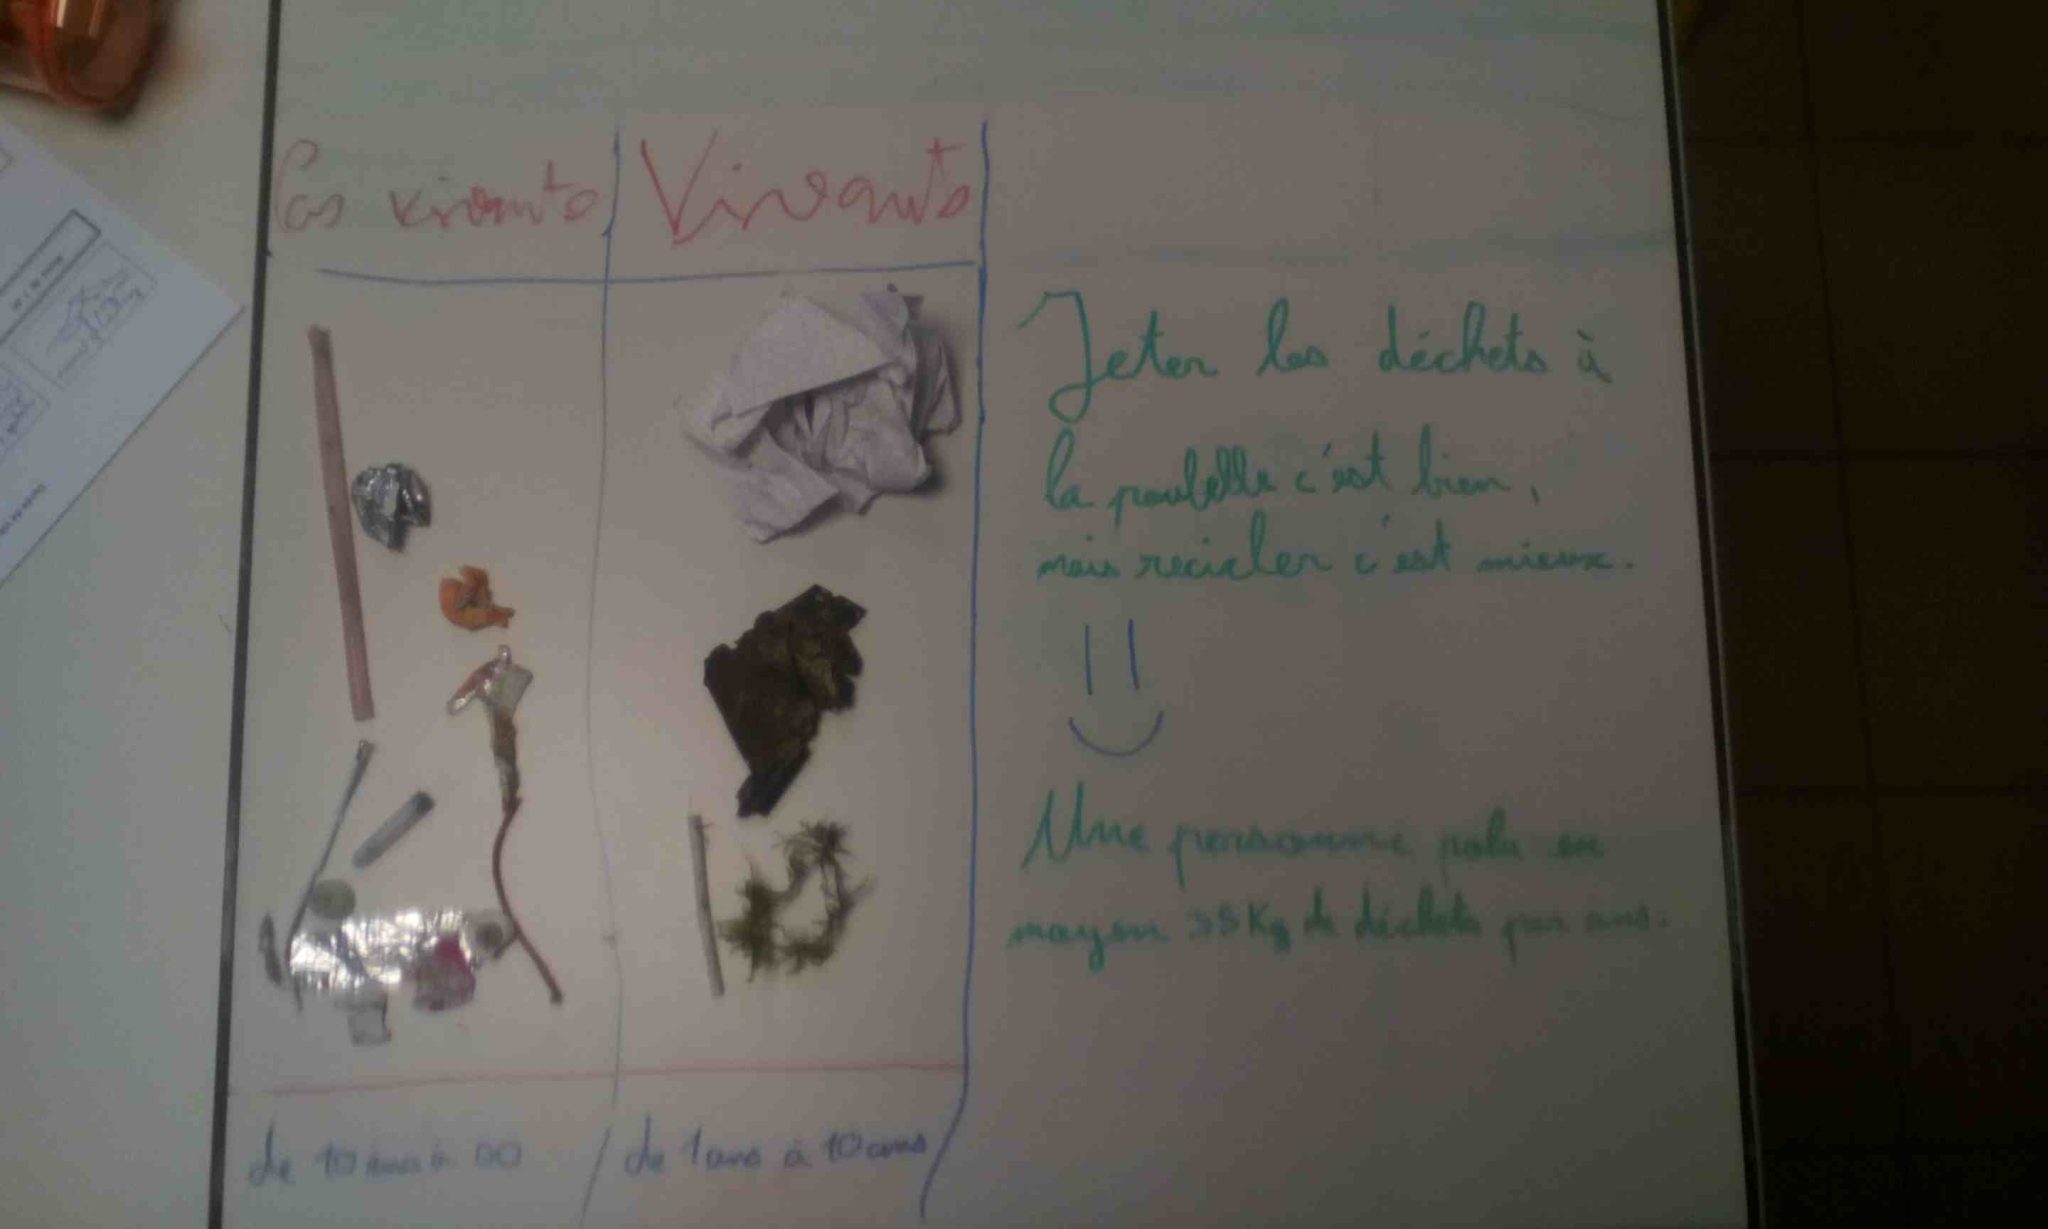 Pas vivants
Vivants
Jeter les déchets à
la poubelle c'est bien,
mais recicler c'est mieux.
Une personne polu en
moyen 35Kg de déchets par ans.
de 10 ans à 00
de 1 ans à 10 ans